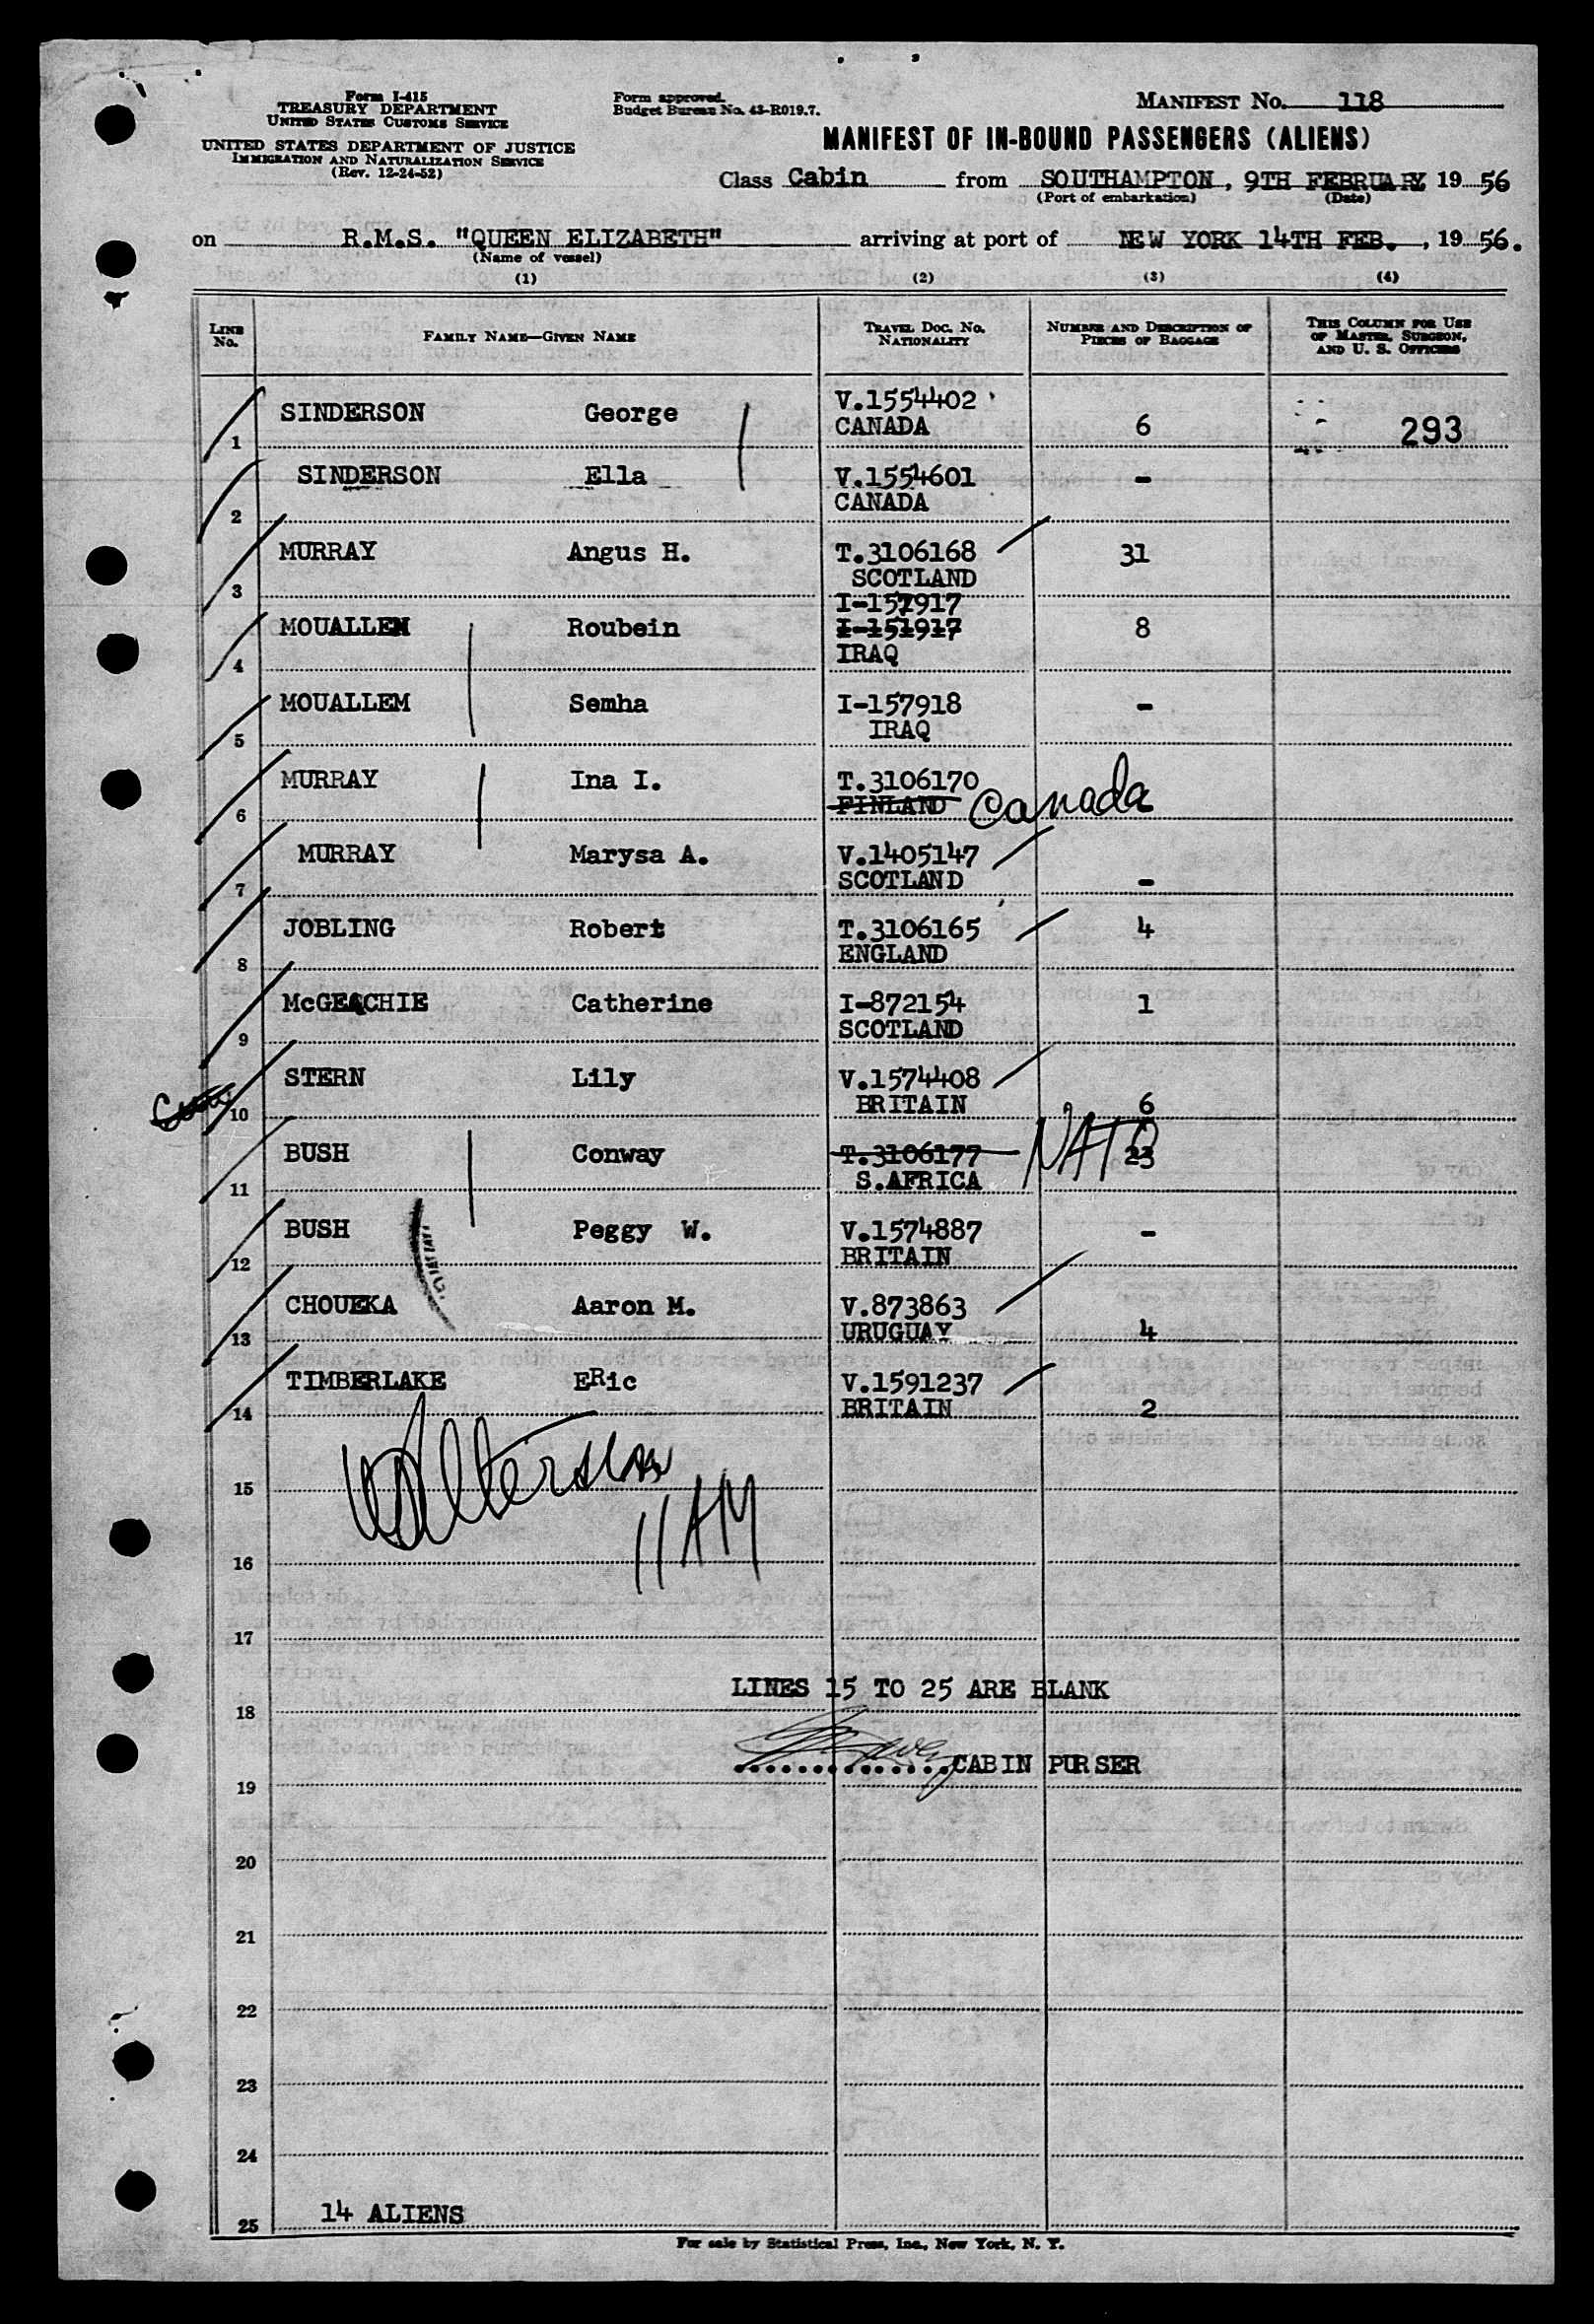 Form I-415
TREASURY DEPARTMENT
UNITED STATES CUSTOMS SERVICE
UNITED STATES DEPARTMENT OF JUSTICE
IMMIGRATION AND NATURALIZATION SERVICE
(Rev. 12-24-52)
Form approved.
Budget Bureau No. 43-R019.7.
MANIFEST No. 118
MANIFEST OF IN-BOUND PASSENGERS (ALIENS)
Class Cabin from SOUTHAMPTON, 9TH FEBRUARY 19 56
(Port of embarkation) (Date)
on R.M.S. "QUEEN ELIZABETH" arriving at port of NEW YORK 14TH FEB. , 19 56.
(Name of vessel)
(1) (2) (3) (4)
LINE No. FAMILY NAME—GIVEN NAME TRAVEL DOC. No. NATIONALITY NUMBER AND DESCRIPTION OF PIECES OF BAGGAGE THIS COLUMN FOR USE OF MASTER, SURGEON, AND U. S. OFFICERS
1 SINDERSON George V.1554402 CANADA 6 293
2 SINDERSON Ella V.1554601 CANADA -
3 MURRAY Angus H. T.3106168 SCOTLAND 31
4 MOUALLEM Roubein I-157917 I-151917 IRAQ 8
5 MOUALLEM Semha I-157918 IRAQ -
6 MURRAY Ina I. T.3106170 FINLAND Canada
7 MURRAY Marysa A. V.1405147 SCOTLAND -
8 JOBLING Robert T.3106165 ENGLAND 4
9 McGEACHIE Catherine I-872154 SCOTLAND 1
10 STERN Lily V.1574408 BRITAIN 6
11 BUSH Conway T.3106177 S.AFRICA NATO 23
12 BUSH Peggy W. V.1574887 BRITAIN -
13 CHOUEKA Aaron M. V.873863 URUGUAY 4
14 TIMBERLAKE ERic V.1591237 BRITAIN 2
15
11 AM
16
17
LINES 15 TO 25 ARE BLANK
18
CABIN PURSER
19
20
21
22
23
24
25 14 ALIENS
For sale by Statistical Press, Inc., New York, N. Y.